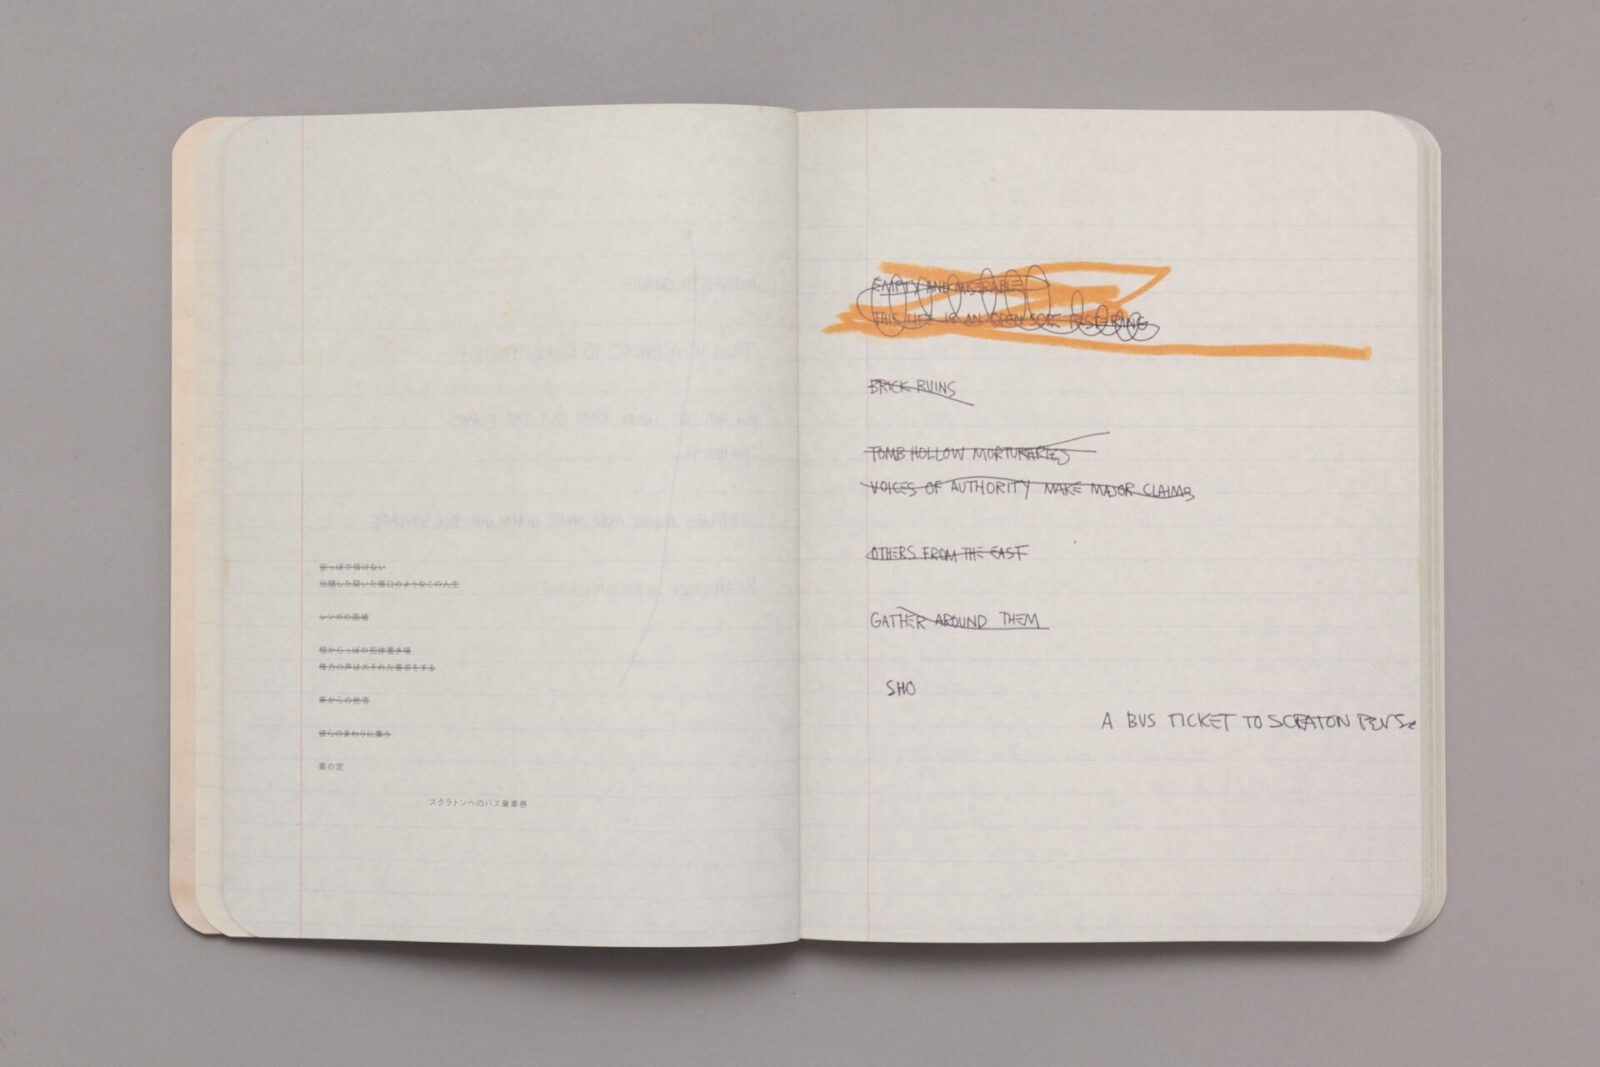 空っぽで情けない
化膿した開いた傷口のようなこの人生
レンガの廃墟
権力の声は大それた要求をする
東からの他者
彼らのまわりに集う
スクラトンへのバス乗車券
EMPTY AND MISERABLE
THIS LIFE IS AN OPEN SORE
BRICK RUINS
TOMB HOLLOW MORTURARIES
VOICES OF AUTHORITY MAKE MAJOR CLAIMS
OTHERS FROM THE EAST
GATHER AROUND THEM
SHO
A BUS TICKET TO SCRATON